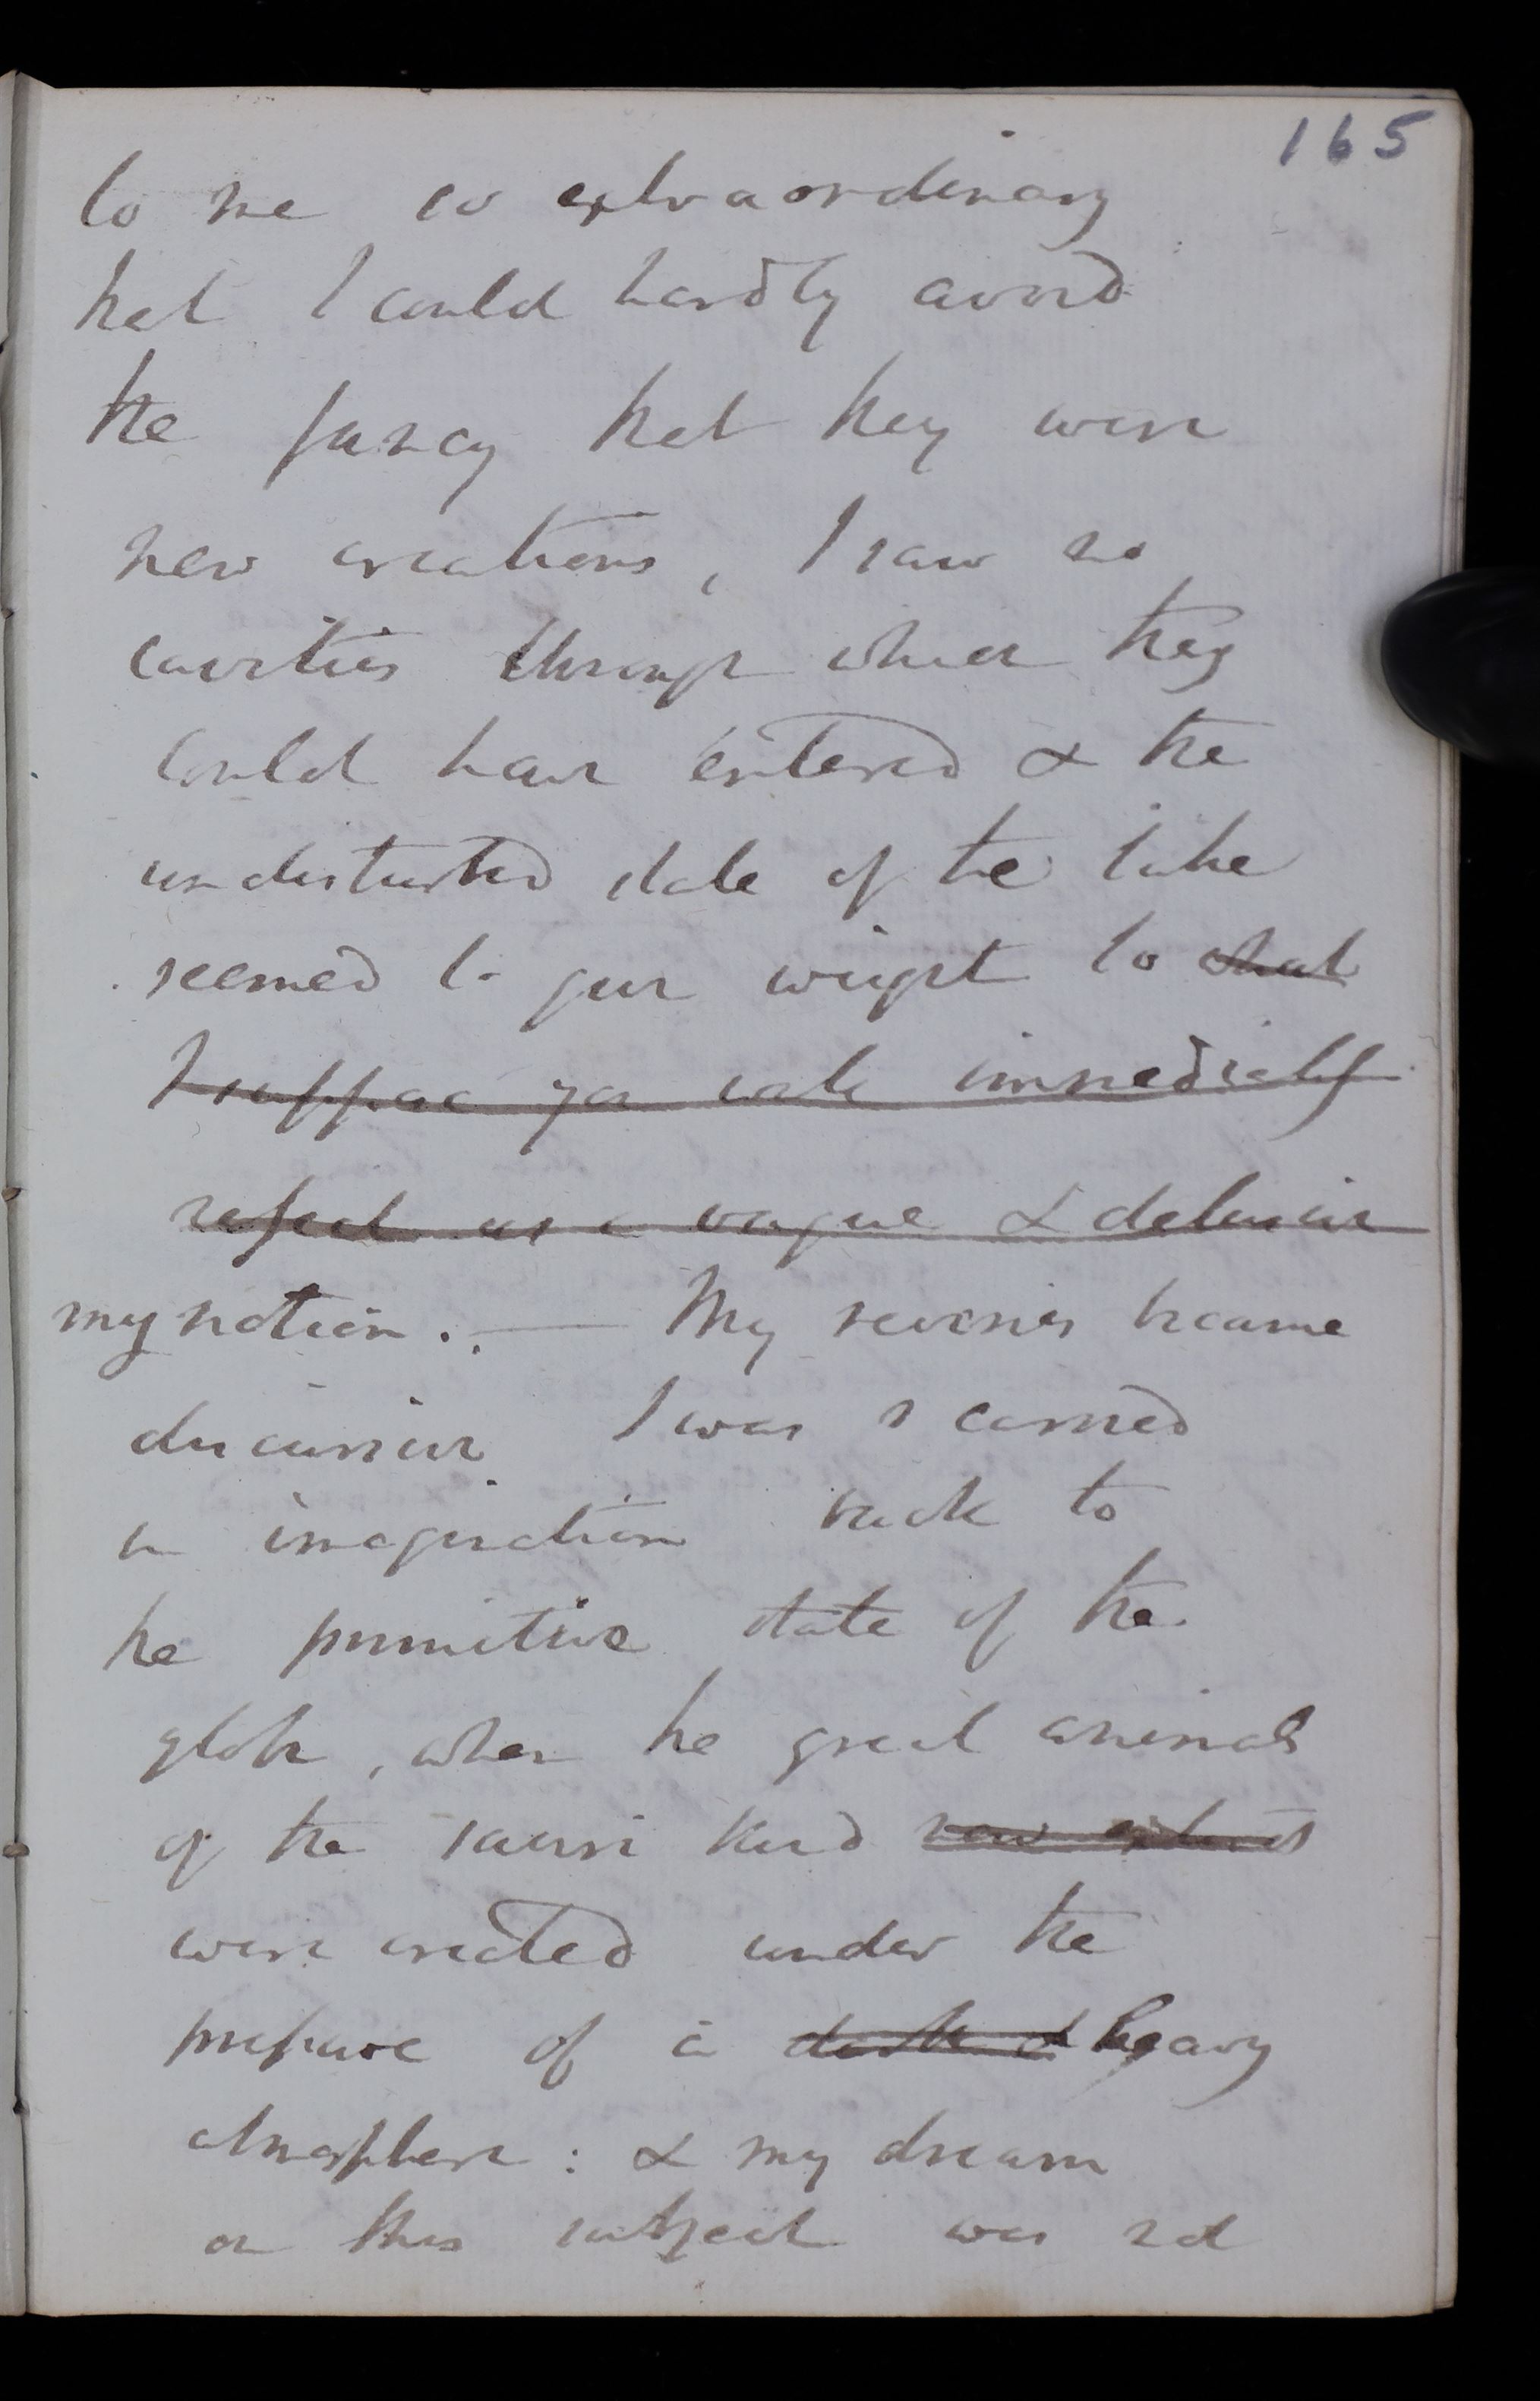 165
to me so extraordinary
that I could hardly avoid
the fancy that they were
new creations, I saw no
cavities through which they
could have entered & the
undisturbed state of the lake
seemed to give weight to what
I suppose you will immediately
reject as a vague & delusive
my notion. — My reveries became
discursive I was carried
in imagination back to
the primitive state of the
globe, when the great animals
of the sauri kind now extinct
were created under the
pressure of a dark & heavy
atmosphere: & my dream
on this subject was not